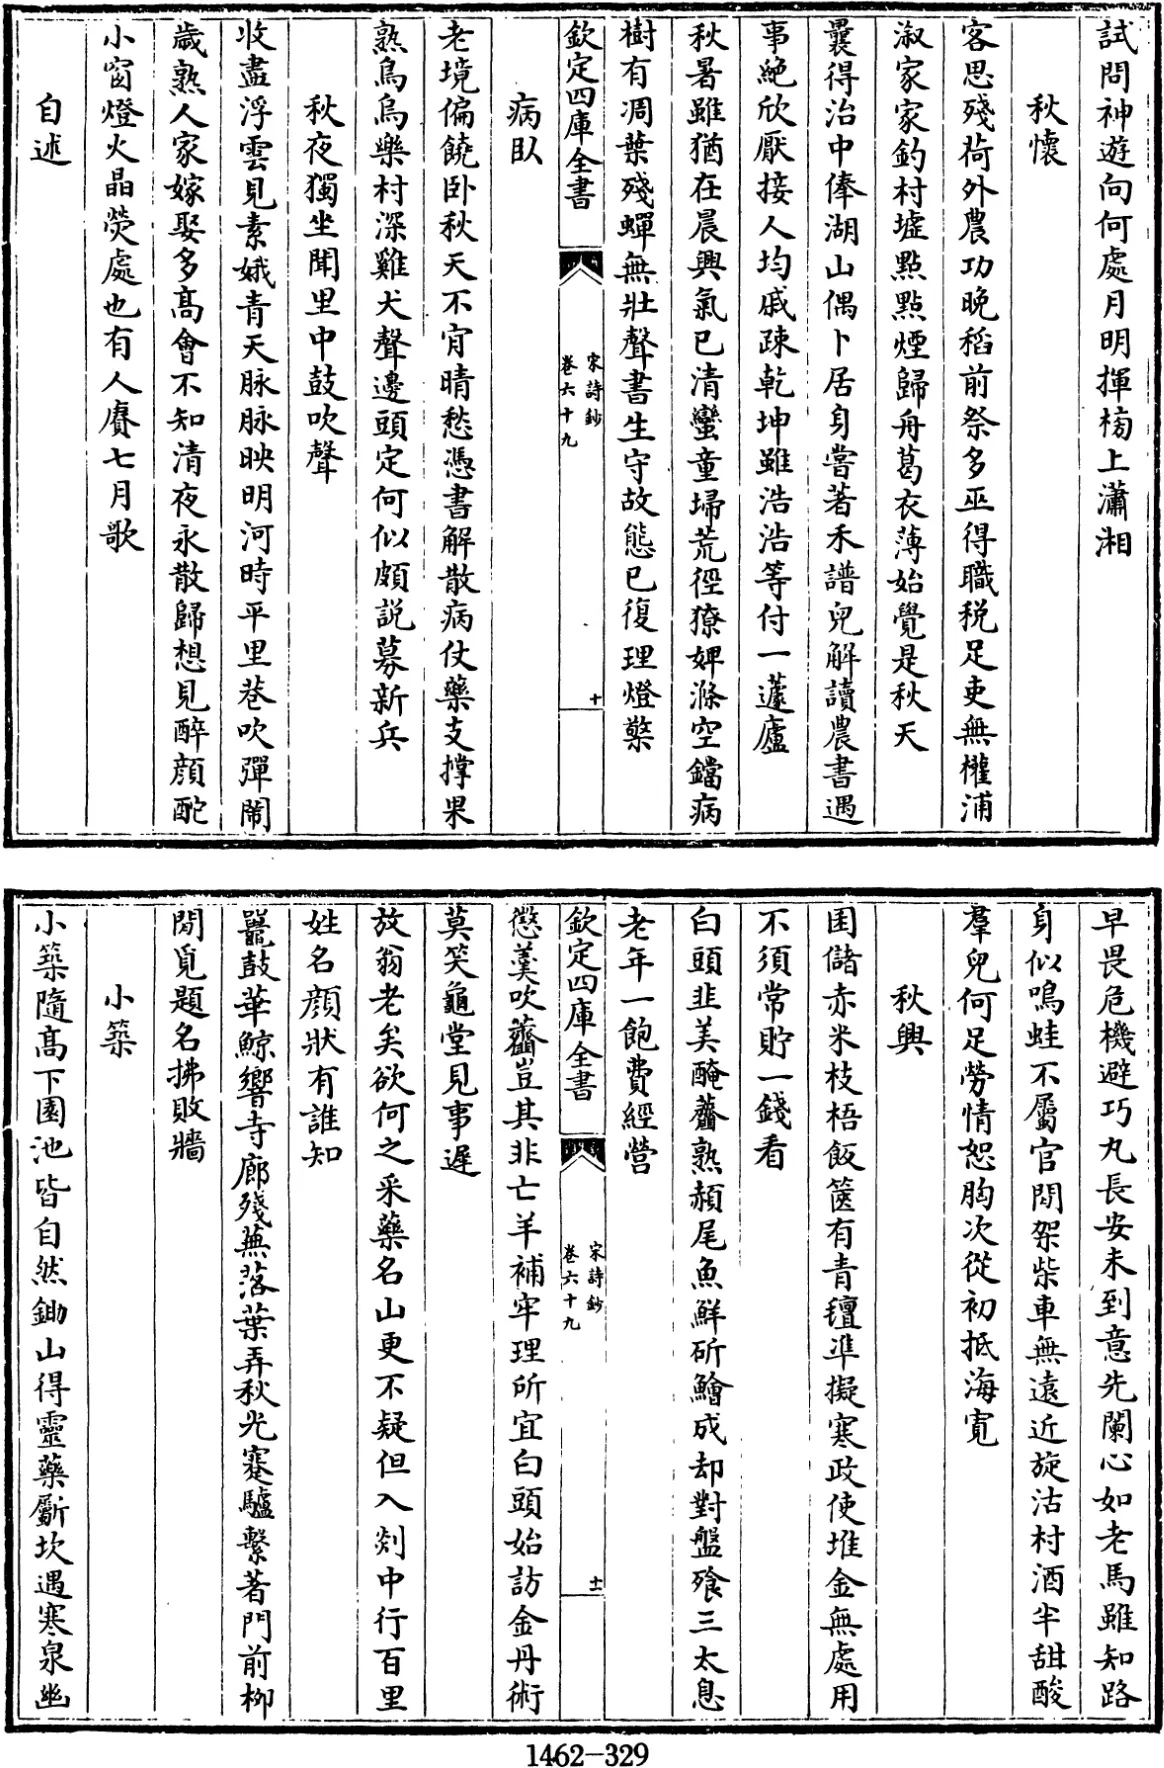 試問神遊向何處月明揮楫上瀟湘
秋懷
客思殘荷外農功晚稻前祭多巫得職稅足吏無權浦
溆家家釣村墟點點煙歸舟葛衣薄始覺是秋天
曩得治中俸湖山偶卜居身嘗著禾譜兒解讀農書遇
事絶欣厭接人均戚疎乾坤雖浩浩等付一蘧廬
秋暑雖猶在晨興氣已清蠻童埽荒徑獠婢滌空鐺病
樹有凋葉殘蟬無壯聲書生守故態已復理燈檠
欽定四庫全書
宋詩鈔
卷六十九
十
病臥
老境偏饒卧秋天不肯晴愁憑書解散病仗藥支撐果
熟烏烏樂村深雞犬聲邊頭定何似頗説募新兵
秋夜獨坐聞里中鼓吹聲
收盡浮雲見素娥青天脉脉映明河時平里巷吹彈鬧
歲熟人家嫁娶多髙會不知清夜永散歸想見醉顔酡
小窗燈火晶熒處也有人賡七月歌
自述
早畏危機避巧丸長安未到意先闌心如老馬雖知路
身似鳴蛙不屬官閒架柴車無遠近旋沽村酒半甜酸
羣兒何足勞情恕胸次從初抵海寬
秋興
囷儲赤米枝梧飯篋有青氊準擬寒政使堆金無處用
不須常貯一錢看
白頭韭美醃虀熟頳尾魚鮮斫鱠成却對盤飱三太息
老年一飽費經營
欽定四庫全書
宋詩鈔
卷六十九
十一
懲羮吹虀豈其非亡羊補牢理所宜白頭始訪金丹術
莫笑龜堂見事遲
放翁老矣欲何之采藥名山更不疑但入剡中行百里
姓名顔狀有誰知
鼉鼓華鯨響寺廊殘蕪落葉弄秋光蹇驢繫著門前柳
閒覓題名拂敗牆
小築
小築隨髙下園池皆自然鋤山得靈藥斸坎遇寒泉幽
1462-329